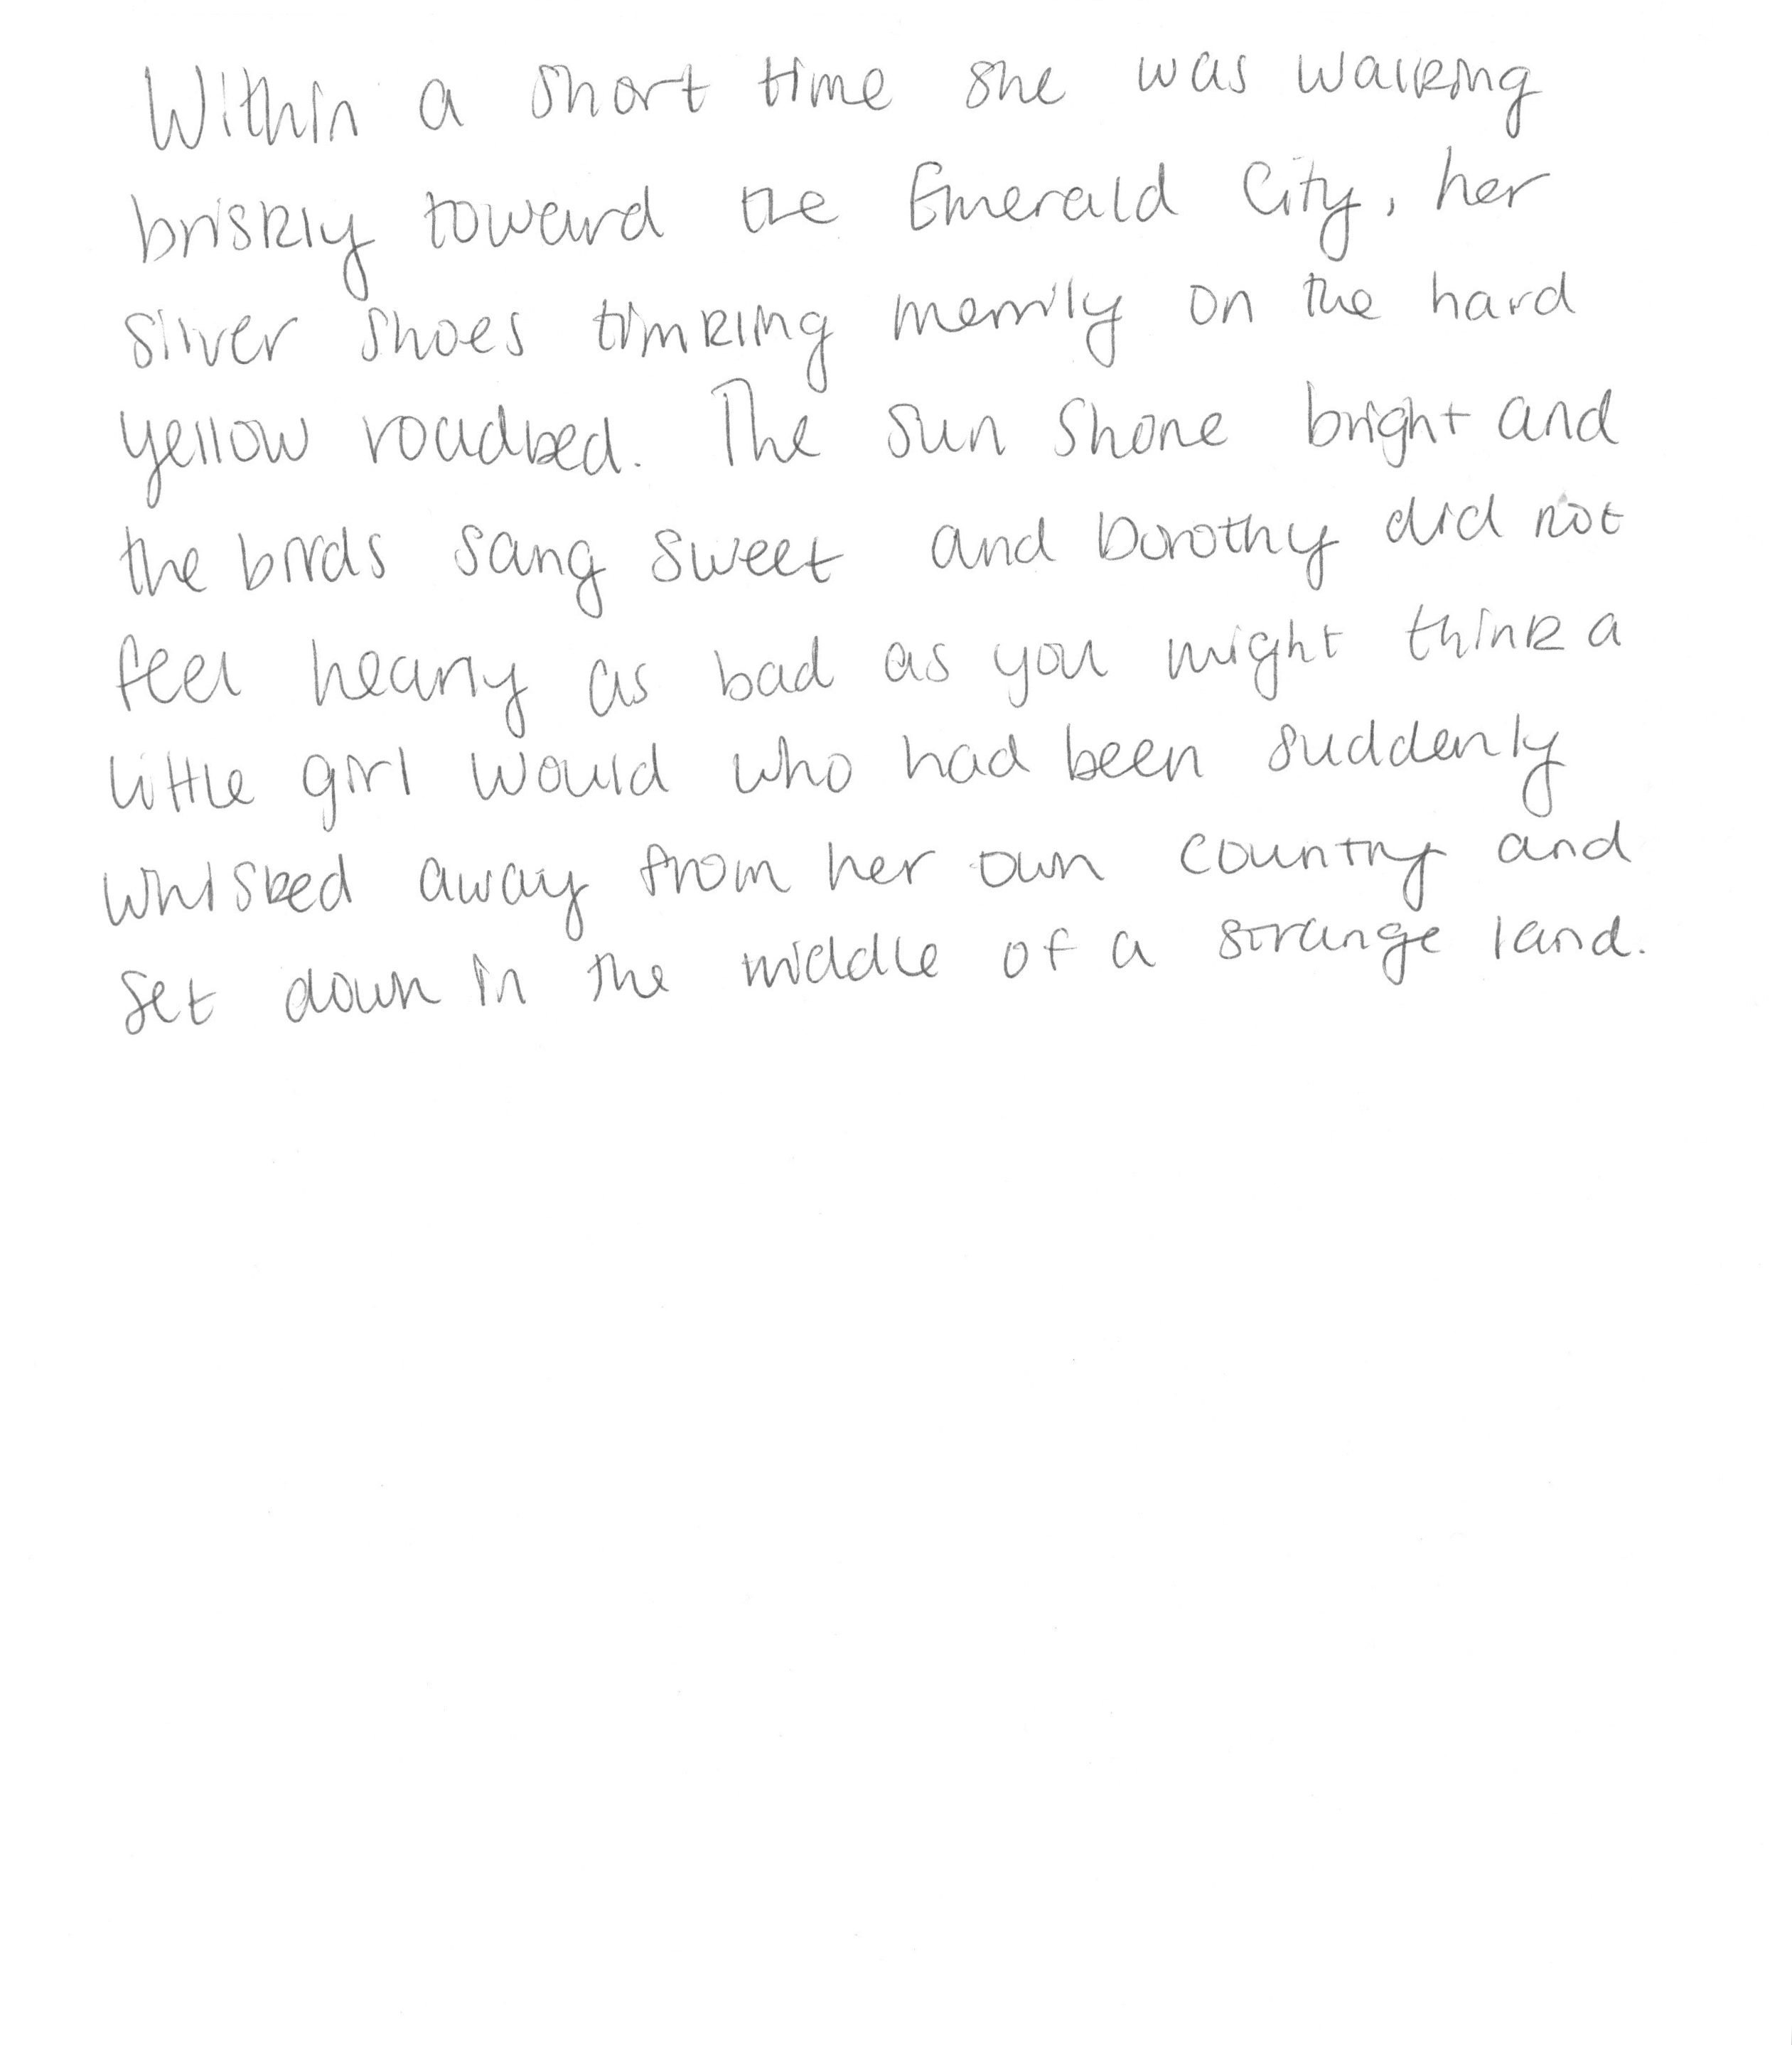 Within a short time she was walking
briskly toward the Emerald City, her
silver shoes tinkling merrily on the hard
yellow roadbed. The sun shone bright and
the birds sang sweet and Dorothy did not
feel nearly as bad as you might think a
little girl would who had been suddenly
whisked away from her own country and
set down in the middle of a strange land.